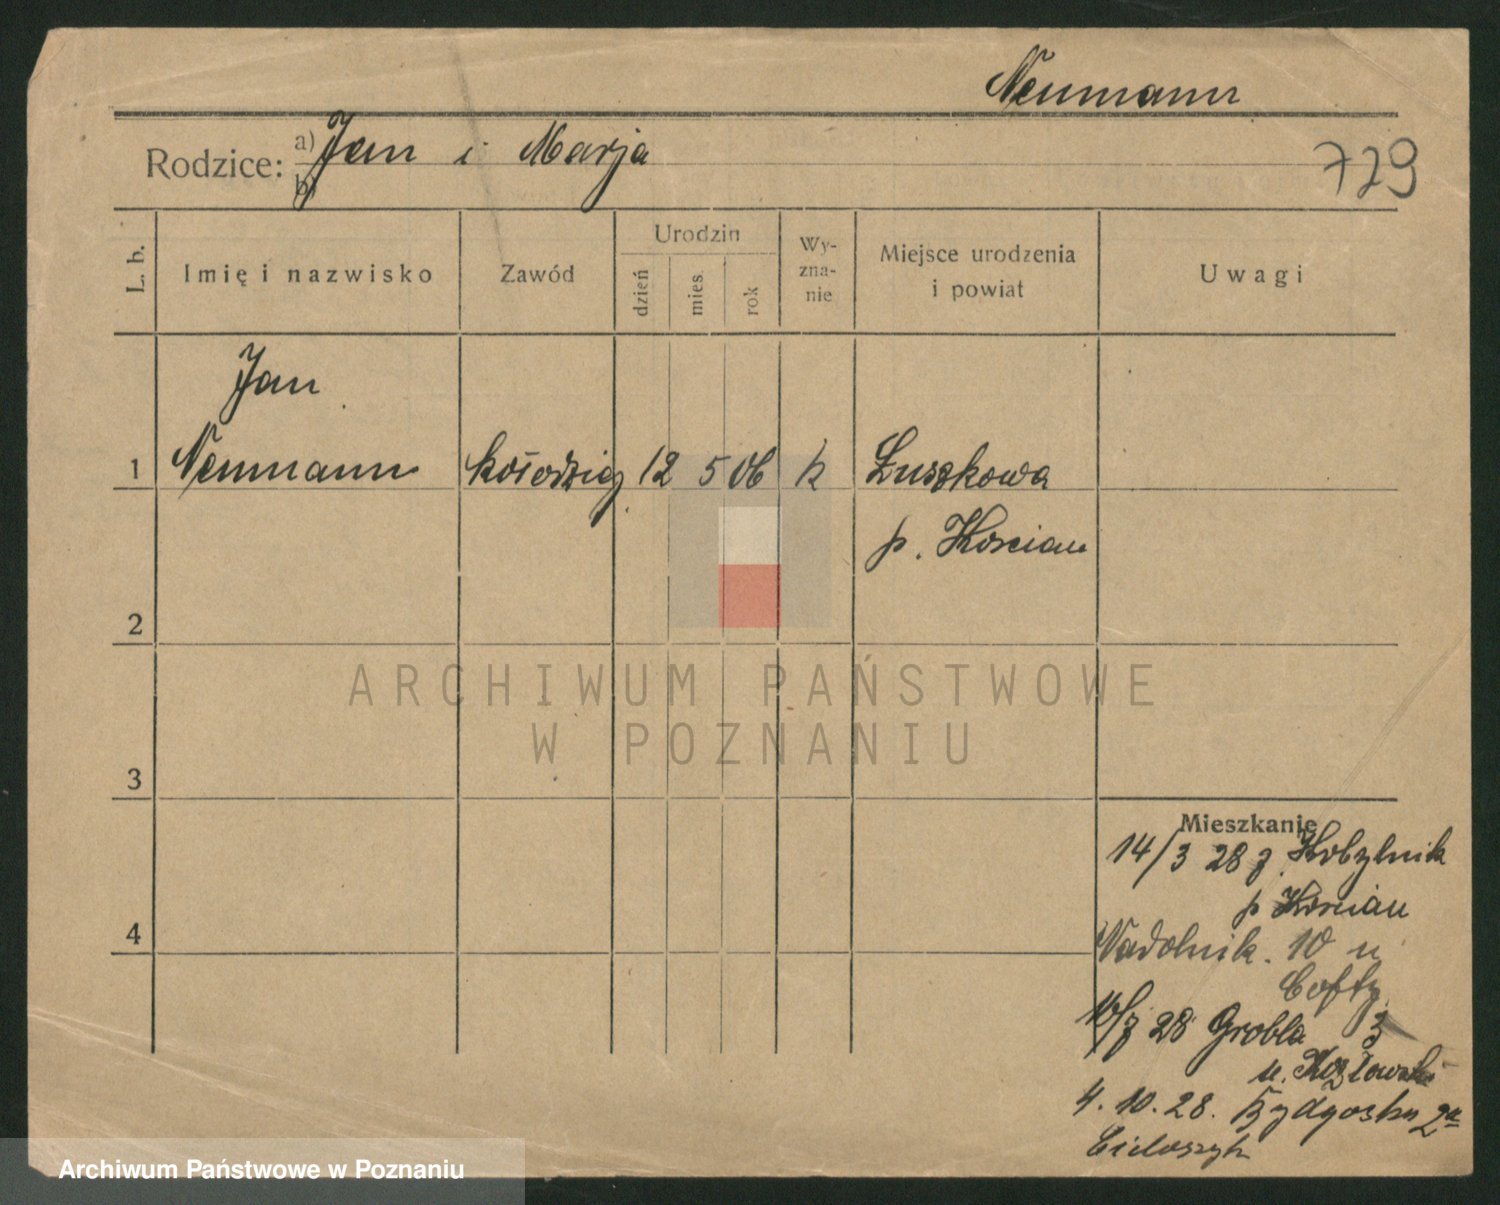 Neumann
Rodzice: a) Jan i Marja
b)
729
L. b.
Imię i nazwisko
Zawód
Urodzin
dzień
mies.
rok
Wy-
zna-
nie
Miejsce urodzenia
i powiat
Uwagi
Jan
1 Neumann kołodziej 12 5 06 k Łuszkowa
p. Koscian
2
3
4
ARCHIWUM PAŃSTWOWE
W POZNANIU
Mieszkanie
14/3 28 z Kobylnik
p Koscian
Nadolnik. 10 u
28 Grobla 3
u. Kozłowski
4. 10. 28.
Archiwum Państwowe w Poznaniu